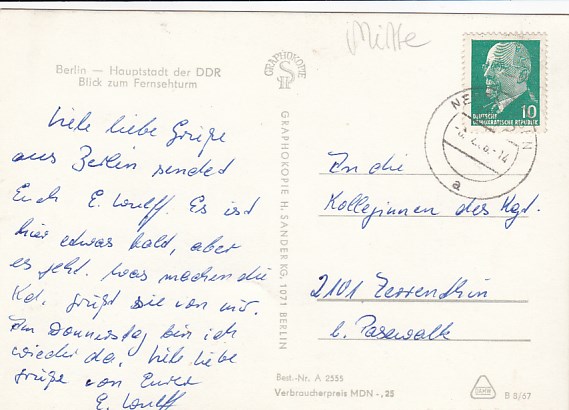 Mitte
Berlin — Hauptstadt der DDR
Blick zum Fernsehturm
GRAPHOKOPIE
Viele liebe Grüße
aus Berlin sendet
Euch E. Wulff. Es ist
hier etwas kalt, aber
es geht. Was machen die
Kd. grüßt sie von mir.
Am Donnerstag bin ich
wieder da. Viele liebe
Grüße von Eurer
E. Wulff
GRAPHOKOPIE H. SANDER KG, 1071 BERLIN
10
DEUTSCHE
DEMOKRATISCHE REPUBLIK
a
An die
Kolleginnen des Kgt.
2101 Zerrenthin
b. Pasewalk
Best.-Nr. A 2555
Verbraucherpreis MDN -,25
B 8/67